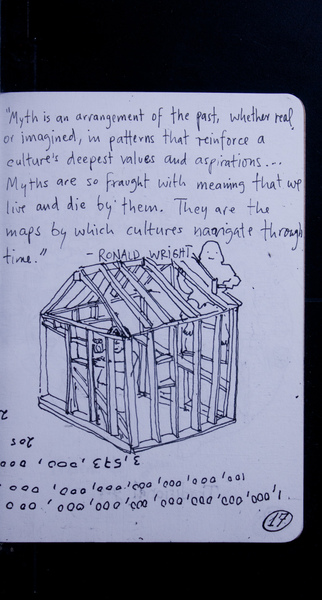 "Myth is an arrangement of the past, whether real
or imagined, in patterns that reinforce a
culture's deepest values and aspirations...
Myths are so fraught with meaning that we
live and die by them. They are the
maps by which cultures navigate through
time." - RONALD WRIGHT
2
20s
3,573,000,000
101,000,000,000,000,000
1,000,000,000,000,000,000
17